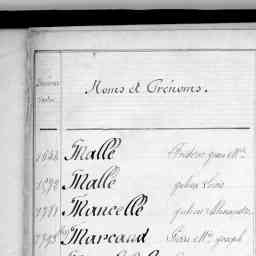 Noms et Prénoms.
Mallé Frédéric Jean Mie
1690 Mallé Julien Louis
1781 Mancellé Julien Alexandre
1793 Marcaud Pierre Mie Joseph